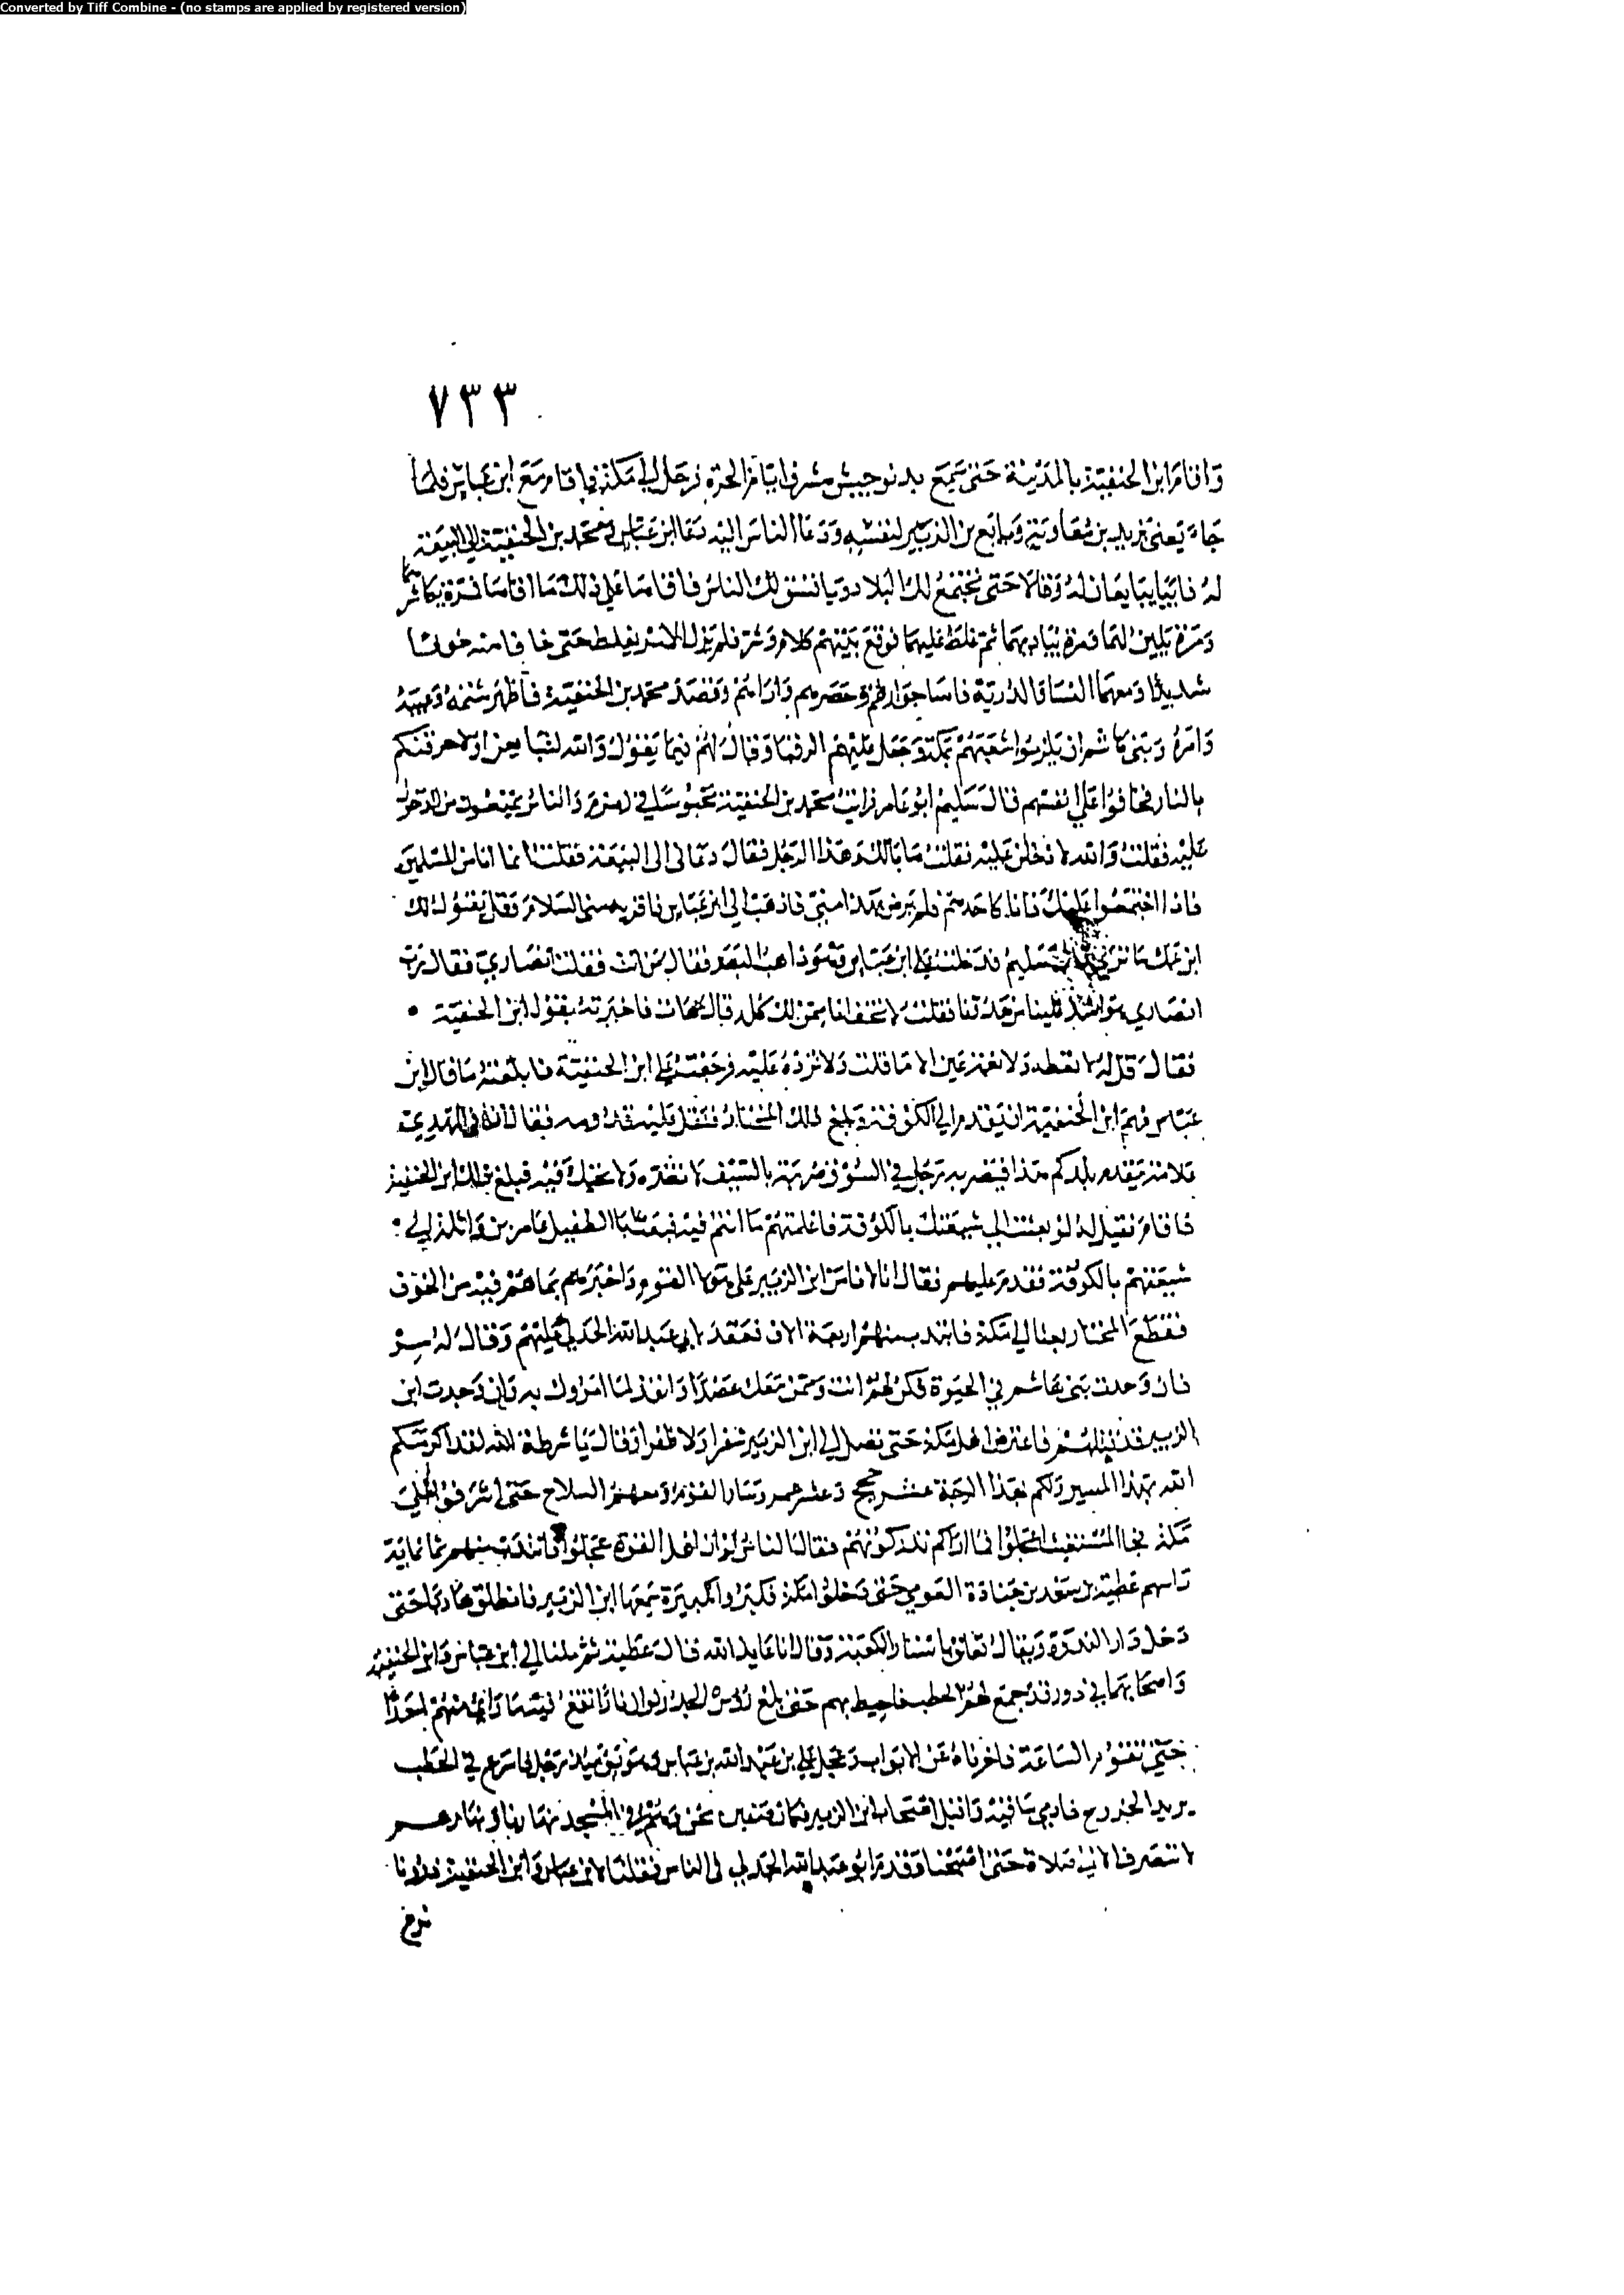 Converted by Tiff Combine - (no stamps are applied by registered version)
٧٣٣
وَاقامَ ابن الحنفيّة بالمدينة حَتى سَمِعَ بدنو جيش مسرف ايّام الحرة فرحل الى مكة فاقام مع ابن عباس فلما
جاءَ يَعنى يزيد بن مُعَاوية وبايع بن الزبير لنفسه وَدَعَا الناسَ اليه دَعَا ابن عَباس ومحمد بن الحنفية الى البيعة
له فابيا يبايعان له وَقالا حَتى تجتمع لك البلاد ويتسق لك الناسُ فاقامَا عَلى ذلك مَا اقامَا فمرة يكاشرهما
وَمَرة يلين لهما ومرة يباديهما ثم غلظ عليهما فوقعَ بَيْنهمْ كلام وَشر فلم يزل الامر يغلظ حَتى خافا منه خوفا
شديدًا ومعهما النسَا والذرية فاسَا جوَارهم وحصَرهم وَاذاهُمْ وَقصَدَ محمد بن الحنفيّة فأظهرَ شتمهُ وَعيبهُ
وَامرهُ وَبَنى هاشم ان يلزموا شعبَهُمْ بمكة وَجَعل عليهمُ الرقبا وَقالَ لهُمْ فيما يَقولُ وَالله لتبايعن اولاحرقنكم
بالنار فخافوُا عَلى انفسهم قالَ سَليمْ ابو عَامر فرايتُ محمد بن الحنفية محبوسًا في زمزم وَالناسُ يمنعُون من الدخول
عليْه فقلتُ وَالله لادخلن عَليه فقلتُ مَا بَالك وَهذا الرجُل فقالَ دعَانى الى البيعَة فقلتُ انما انا من المسْلمينَ
فاذا اجْتمعُوا عَليْكَ فانا كاحَدهم فلم يرض بهذا منى فاذهَبْ الى ابن عَباس فاقريه منى السَلامَ وَقل يَقولُ لك
ابن عَمك ما ترى قالَ سَليمُ فدَخلتُ عَلى ابن عَباس وَهوَ ذاهبُ البَصَر فقال من انت فقلتُ انصَاري فقال رُب
انصَاري هوَ اشد عَلينا من عَدونا فقلتُ لا تخف انا ممن لك كلهُ قالَ هَات فاخبَرتهُ بقول ابن الحنفية
فقالَ قل لهُ لا تطعه وَلا نعمة عَين الا مَا قلت وَلا تزدهُ عَليه فرجَعتُ الى ابن الحنفيّة فابلغتهُ مَا قال ابن
عَبّاس فهمّ ابن الحنفيّة ان يقدم الى الكوفة وَبلغ ذلك المختارُ فثقل عَليه قدُومه فقال ان في المهدِي
عَلامَة يقدم بلدكم هَذا فيَضربه رَجُل في السُوق ضربَة بالسّيف لا تضرّه وَلا تحيك فيْه فبلغ ذلك ابن الحنفية
فاقامَ فقيل لهُ لوْ بعثت الى شيعَتك بالكوفة فاعلمتهُمْ مَا انتم فيْه فبعَث ابَا الطفيل عَامر بن وَاثلة الى
شيعَتهمْ بالكوفة فقدمَ عليهم فقالَ انا لا نامَن ابن الزبير عَلى هَولا القوم وَاخبرَهم بمَا هُمْ فيه من الخوف
فقطعَ المختار بعثا الى مكة فانتدبَ منهم اربعَة الاف فعقدَ لابي عَبد الله الجدلي عَليهمْ وَقالَ له سِرْ
فان وَجدت بنى هَاشم في الحيَوة فكن لهم انت وَمن مَعَك عَضدًا وَانفذ لمَا امَروك به وَان وَجدت ابن
الزبير قد قتلهُمْ فاعترض اهل مكة حَتى تصل الى ابن الزبير ثم لا تدع من ال الزبير شفرا وَلا ظفرا وَقالَ يَا شرطة الله لقد اكرمَكم
الله بهذا المسير وَلكم بهَذا الوَجه عشر حجج وَعشر عمر وَسَارَ القومُ وَمعهُم السلاحُ حَتى اشرفوا عَلى
مَكة فجا المُسْتغيث اعجَلوُا فما اراكم تدركونَهُمْ فقالَ الناسُ لوْ ان اهل القوة عَجّلوُا فانتدَبَ منهم ثمانماية
رَاسهم عَطية بن سَعْد بن جنادَة العوفي حَتى دَخلوُا مكة فكبّرُوا تكبيرَة سَمعَها ابن الزبير فانطلقَ هَاربًا حَتى
دَخل دَار الندوَة وَيقالُ تعَلقَ باستار الكعبَة وَقالَ انا عايذ الله قالَ عَطية ثم مِلنا الى ابن عبَاس وَابن الحنفية
وَاصحَابهمَا في دور قد جمعَ لهُم الحطب فاحِيط بهم حَتى بلغَ رُؤس الجدُر لوْ ان نارًا تقعُ فيه مَا رُئيَ منهُمْ احَدًا
حَتى تقوُمَ السّاعَة فاخرناهُ عَن الابوَاب وَعجل علي بن عَبد الله بن عباس وهوَ يوميذ رَجُل فاسْرعَ في الحَطب
يريد الخروج فادمَاهُ وَاقبلَ اصْحَاب ابن الزبير فكنا صَفين نحنُ وَهُمْ في المسْجد نهارنا وَنهَارهم
لا ننصَرف الا الى صَلاة حَتى اصْبَحْنا وَقدمَ ابو عَبد الله الجَدلي في الناس فقلنَا لابن عباس وَابن الحنفية ذرُونا
نرح